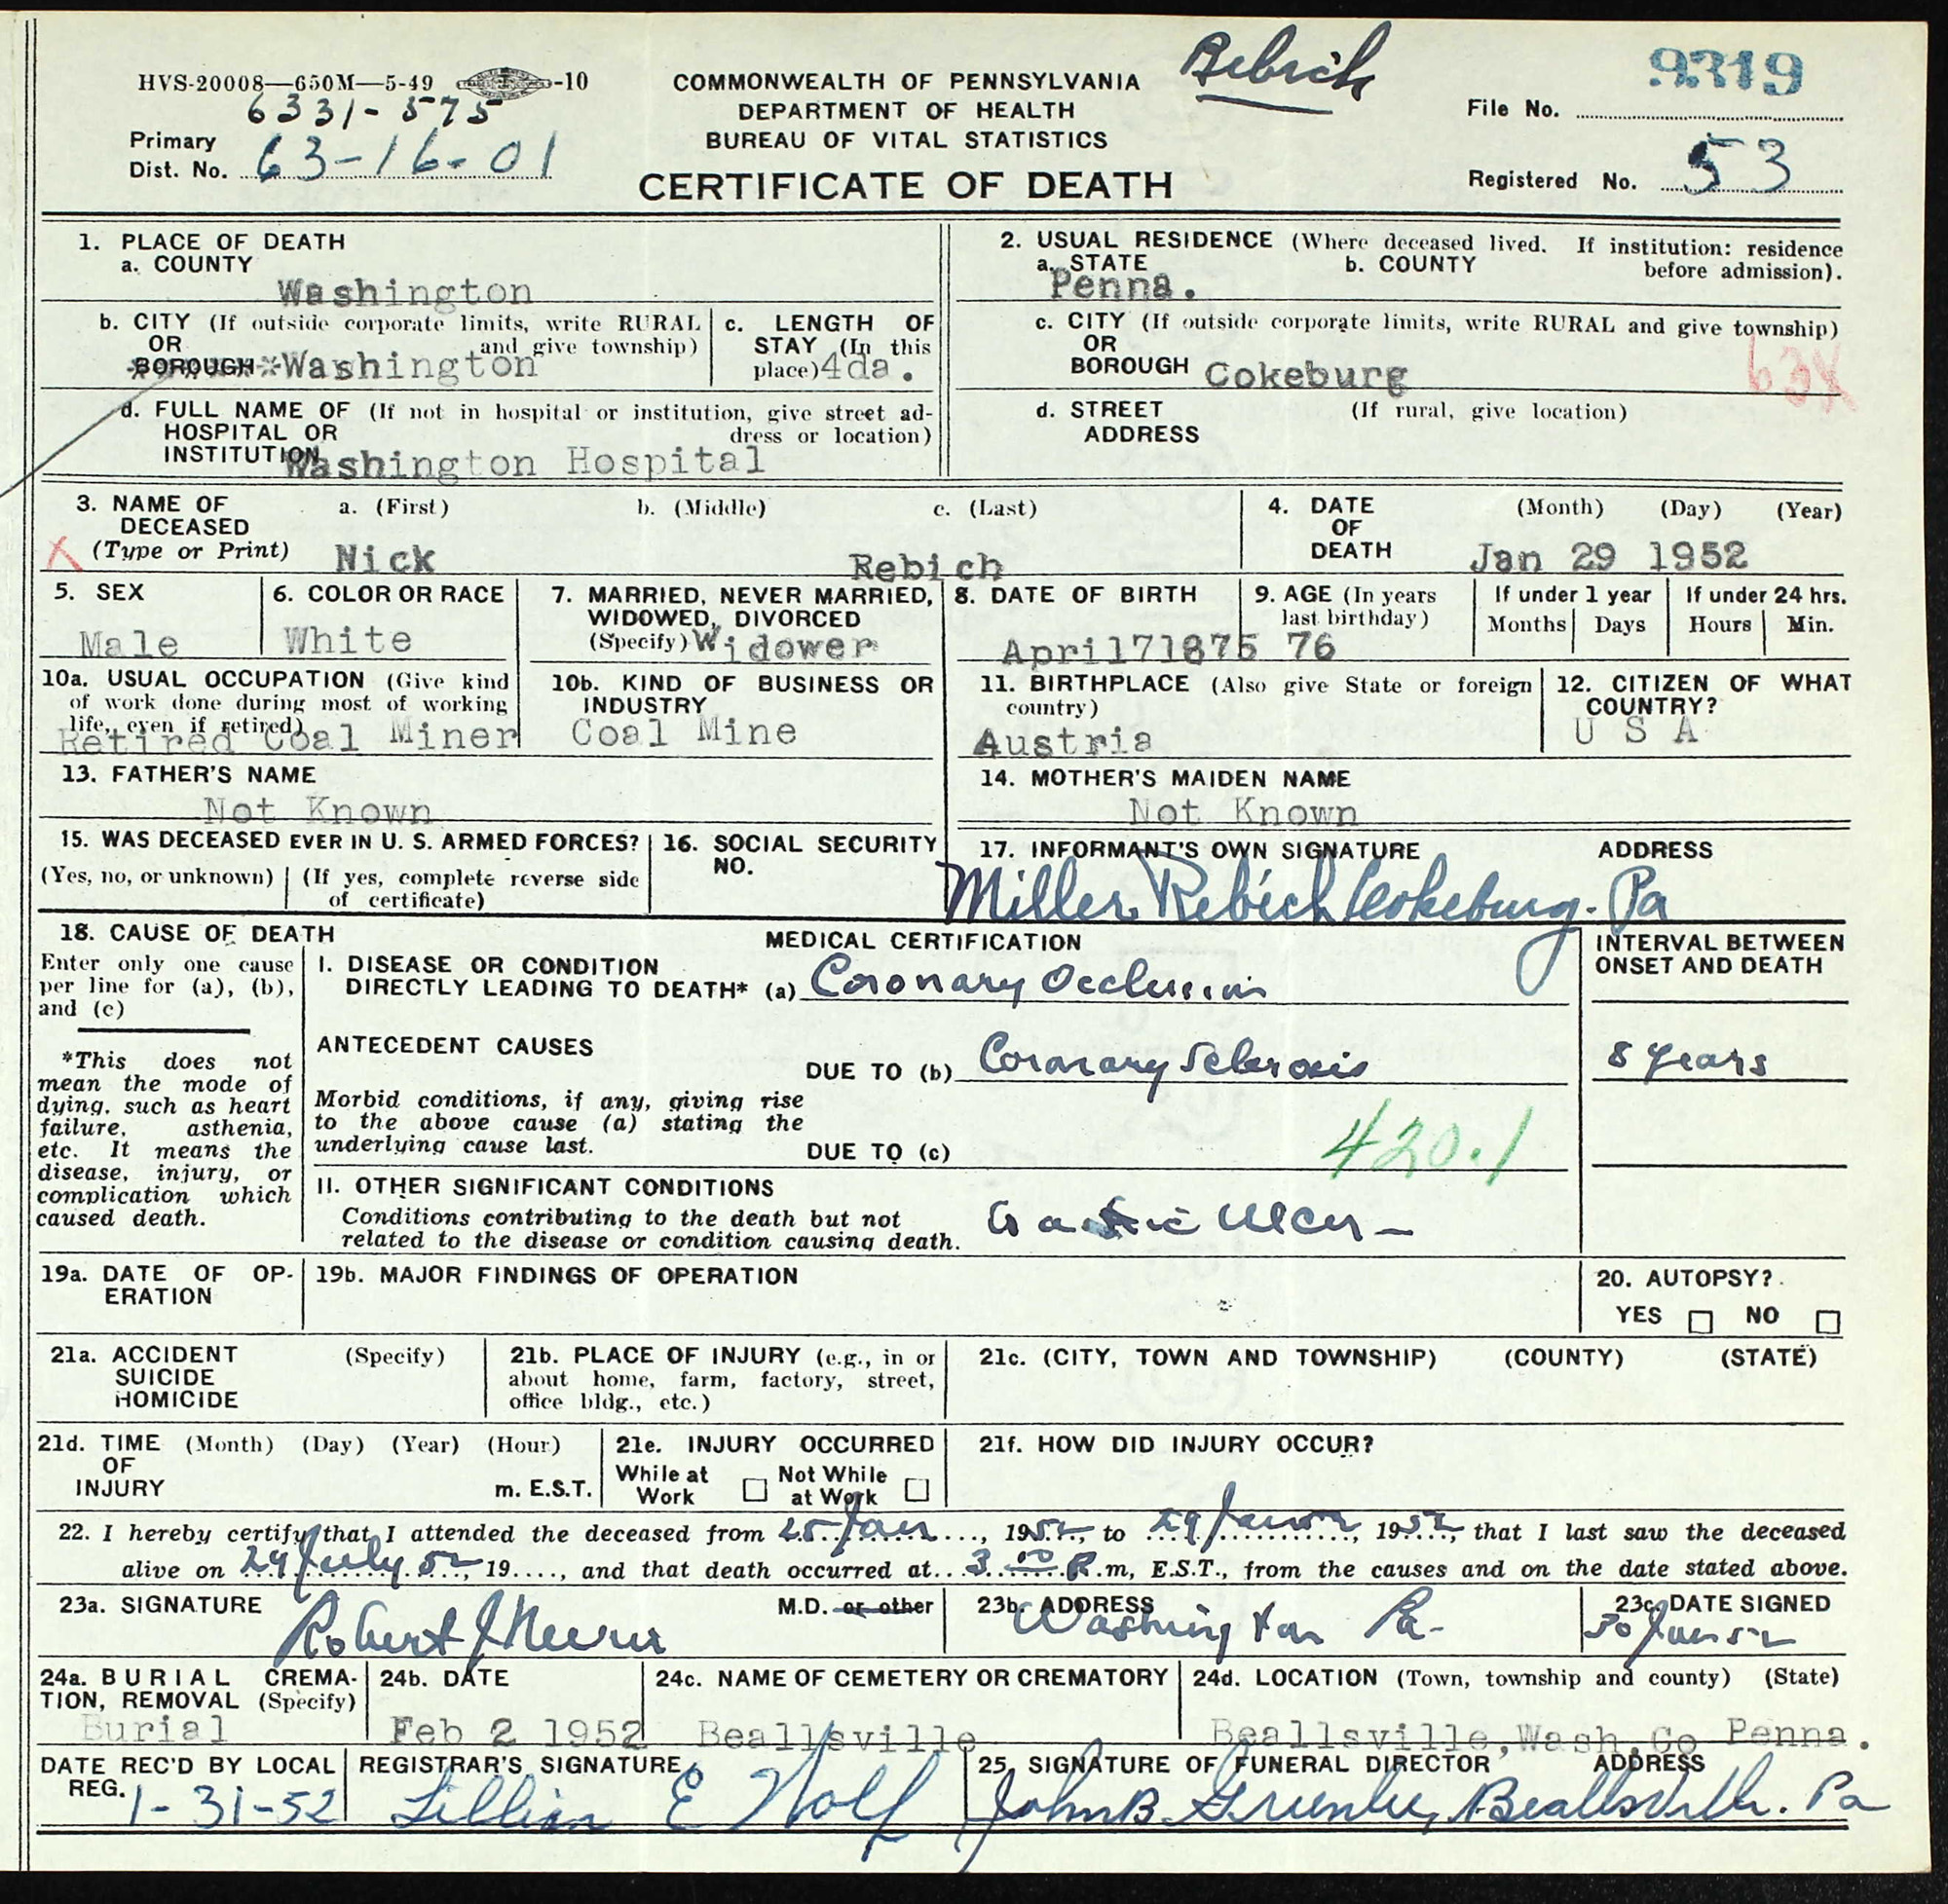 Rebich
9319
HVS-20008—650M—5-49 -10
COMMONWEALTH OF PENNSYLVANIA
DEPARTMENT OF HEALTH
BUREAU OF VITAL STATISTICS
CERTIFICATE OF DEATH
6331-575
Primary
Dist. No. 63-16-01
File No.
Registered No. 53
1. PLACE OF DEATH
a. COUNTY
Washington
2. USUAL RESIDENCE (Where deceased lived. If institution: residence
before admission).
a. STATE b. COUNTY
Penna.
b. CITY (If outside corporate limits, write RURAL
OR and give township)
BOROUGH Washington
c. LENGTH OF
STAY (In this
place) 4da.
c. CITY (If outside corporate limits, write RURAL and give township)
OR
BOROUGH Cokeburg
63X
d. FULL NAME OF (If not in hospital or institution, give street ad-
HOSPITAL OR dress or location)
INSTITUTION Washington Hospital
d. STREET (If rural, give location)
ADDRESS
3. NAME OF a. (First) b. (Middle) c. (Last)
DECEASED
X (Type or Print) Nick Rebich
4. DATE (Month) (Day) (Year)
OF
DEATH Jan 29 1952
5. SEX
Male
6. COLOR OR RACE
White
7. MARRIED, NEVER MARRIED,
WIDOWED, DIVORCED
(Specify) Widower
8. DATE OF BIRTH
April171875
9. AGE (In years
last birthday)
76
If under 1 year
Months Days
If under 24 hrs.
Hours Min.
10a. USUAL OCCUPATION (Give kind
of work done during most of working
life, even if retired)
Retired Coal Miner
10b. KIND OF BUSINESS OR
INDUSTRY
Coal Mine
11. BIRTHPLACE (Also give State or foreign
country)
Austria
12. CITIZEN OF WHAT
COUNTRY?
U S A
13. FATHER'S NAME
Not Known
14. MOTHER'S MAIDEN NAME
Not Known
15. WAS DECEASED EVER IN U. S. ARMED FORCES?
(Yes, no, or unknown) (If yes, complete reverse side
of certificate)
16. SOCIAL SECURITY
NO.
17. INFORMANT'S OWN SIGNATURE ADDRESS
Miller Rebich Cokeburg. Pa
18. CAUSE OF DEATH
Enter only one cause
per line for (a), (b),
and (c)
*This does not
mean the mode of
dying, such as heart
failure, asthenia,
etc. It means the
disease, injury, or
complication which
caused death.
MEDICAL CERTIFICATION
I. DISEASE OR CONDITION
DIRECTLY LEADING TO DEATH* (a) Coronary Occlusion
ANTECEDENT CAUSES
DUE TO (b) Coronary Sclerosis
Morbid conditions, if any, giving rise
to the above cause (a) stating the
underlying cause last.
DUE TO (c)
420.1
II. OTHER SIGNIFICANT CONDITIONS
Conditions contributing to the death but not
related to the disease or condition causing death.
Gastric Ulcer
INTERVAL BETWEEN
ONSET AND DEATH
8 years
19a. DATE OF OP-
ERATION
19b. MAJOR FINDINGS OF OPERATION
20. AUTOPSY?
YES NO
21a. ACCIDENT (Specify)
SUICIDE
HOMICIDE
21b. PLACE OF INJURY (e.g., in or
about home, farm, factory, street,
office bldg., etc.)
21c. (CITY, TOWN AND TOWNSHIP) (COUNTY) (STATE)
21d. TIME (Month) (Day) (Year) (Hour)
OF
INJURY m. E.S.T.
21e. INJURY OCCURRED
While at Not While
Work at Work
21f. HOW DID INJURY OCCUR?
22. I hereby certify that I attended the deceased from 25 Jan, 1952, to 29 , 1952, that I last saw the deceased
alive on 29 July 52, 19...., and that death occurred at 3 00 P.m, E.S.T., from the causes and on the date stated above.
23a. SIGNATURE M.D. or other
Robert J
23b. ADDRESS
Washington Pa.
23c. DATE SIGNED
30 Jan 52
24a. BURIAL CREMA-
TION, REMOVAL (Specify)
Burial
24b. DATE
Feb 2 1952
24c. NAME OF CEMETERY OR CREMATORY
Beallsville
24d. LOCATION (Town, township and county) (State)
Beallsville, Wash. Co Penna.
DATE REC'D BY LOCAL
REG. 1-31-52
REGISTRAR'S SIGNATURE
Lillian E Wolf
25. SIGNATURE OF FUNERAL DIRECTOR ADDRESS
John B. Greenlee, Beallsville. Pa